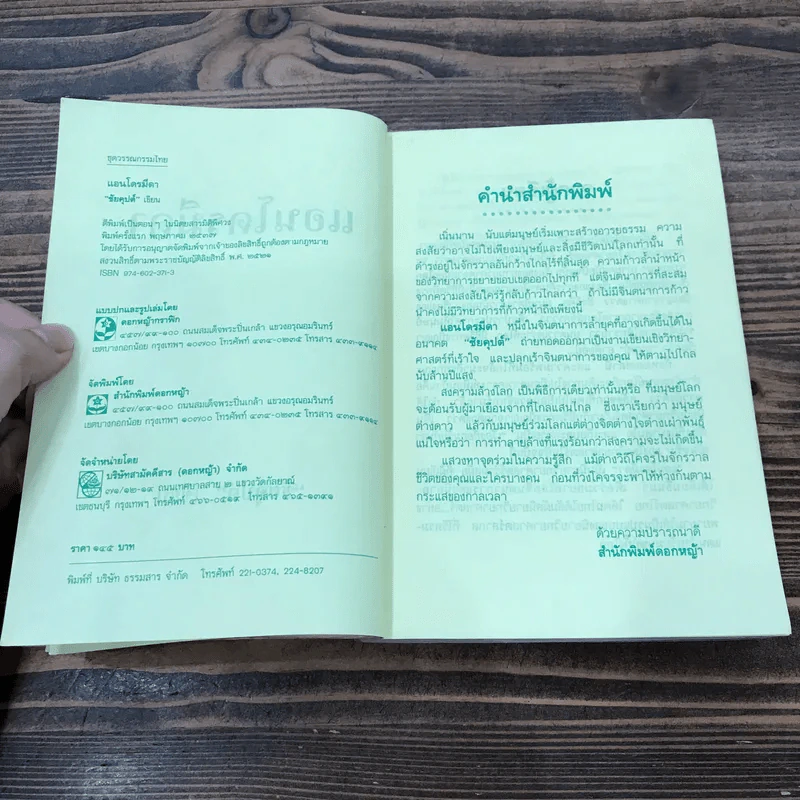 ชุดวรรณกรรมไทย
แอนโดรมีดา
"ชัยคุปต์" เขียน
ตีพิมพ์เป็นตอน ๆ ในนิตยสารมิติพิศวง
พิมพ์ครั้งแรก พฤษภาคม ๒๕๓๗
โดยได้รับการอนุญาตจัดพิมพ์จากเจ้าของลิขสิทธิ์ถูกต้องตามกฎหมาย
สงวนลิขสิทธิ์ตามพระราชบัญญัติลิขสิทธิ์ พ.ศ. ๒๕๒๑
ISBN 974-602-371-3
แบบปกและรูปเล่มโดย
ดอกหญ้ากราฟิก
๔๕๗/๙๙-๑๐๐ ถนนสมเด็จพระปิ่นเกล้า แขวงอรุณอมรินทร์
เขตบางกอกน้อย กรุงเทพฯ ๑๐๗๐๐ โทรศัพท์ ๔๓๔-๐๒๓๕ โทรสาร ๔๓๓-๙๑๑๔
จัดพิมพ์โดย
สำนักพิมพ์ดอกหญ้า
๔๕๗/๙๙-๑๐๐ ถนนสมเด็จพระปิ่นเกล้า แขวงอรุณอมรินทร์
เขตบางกอกน้อย กรุงเทพฯ ๑๐๗๐๐ โทรศัพท์ ๔๓๔-๐๒๓๕ โทรสาร ๔๓๓-๙๑๑๔
จัดจำหน่ายโดย
บริษัทสามัคคีสาร (ดอกหญ้า) จำกัด
๓๑/๑๒-๑๙ ถนนเทศบาลสาย ๒ แขวงวัดกัลยาณ์
เขตธนบุรี กรุงเทพฯ โทรศัพท์ ๔๖๖-๐๕๑๙ โทรสาร ๔๖๕-๑๓๙๑
ราคา ๑๔๕ บาท
พิมพ์ที่ บริษัท ธรรมสาร จำกัด โทรศัพท์ 221-0374, 224-8207
คำนำสำนักพิมพ์
เนิ่นนาน นับแต่มนุษย์เริ่มเพาะสร้างอารยธรรม ความ
สงสัยว่าอาจไม่ใช่เพียงมนุษย์และสิ่งมีชีวิตบนโลกเท่านั้น ที่
ดำรงอยู่ในจักรวาลอันกว้างไกลไร้ที่สิ้นสุด ความก้าวล้ำนำหน้า
ของวิทยาการขยายขอบเขตออกไปทุกที แต่จินตนาการที่สะสม
จากความสงสัยใคร่รู้กลับก้าวไกลกว่า ถ้าไม่มีจินตนาการก้าว
นำคงไม่มีวิทยาการที่ก้าวหน้าถึงเพียงนี้
แอนโดรมีดา หนึ่งในจินตนาการล้ำยุคที่อาจเกิดขึ้นได้ใน
อนาคต "ชัยคุปต์" ถ่ายทอดออกมาเป็นงานเขียนเชิงวิทยา-
ศาสตร์ที่เร้าใจ และปลุกเร้าจินตนาการของคุณ ให้ตามไปไกล
นับล้านปีแสง
สงความล้างโลก เป็นพิธีการเดียวเท่านั้นหรือ ที่มนุษย์โลก
จะต้อนรับผู้มาเยือนจากที่ไกลแสนไกล ซึ่งเราเรียกว่า มนุษย์
ต่างดาว แล้วกับมนุษย์ร่วมโลกแต่ต่างจิตต่างใจต่างเผ่าพันธุ์
แน่ใจหรือว่า การทำลายล้างที่แรงร้อนกว่าสงความจะไม่เกิดขึ้น
แสวงหาจุดร่วมในความรู้สึก แม้ต่างวิถีโคจรในจักรวาล
ชีวิตของคุณและใครบางคน ก่อนที่วงโคจรจะพาให้ห่างกันตาม
กระแสของกาลเวลา
ด้วยความปรารถนาดี
สำนักพิมพ์ดอกหญ้า